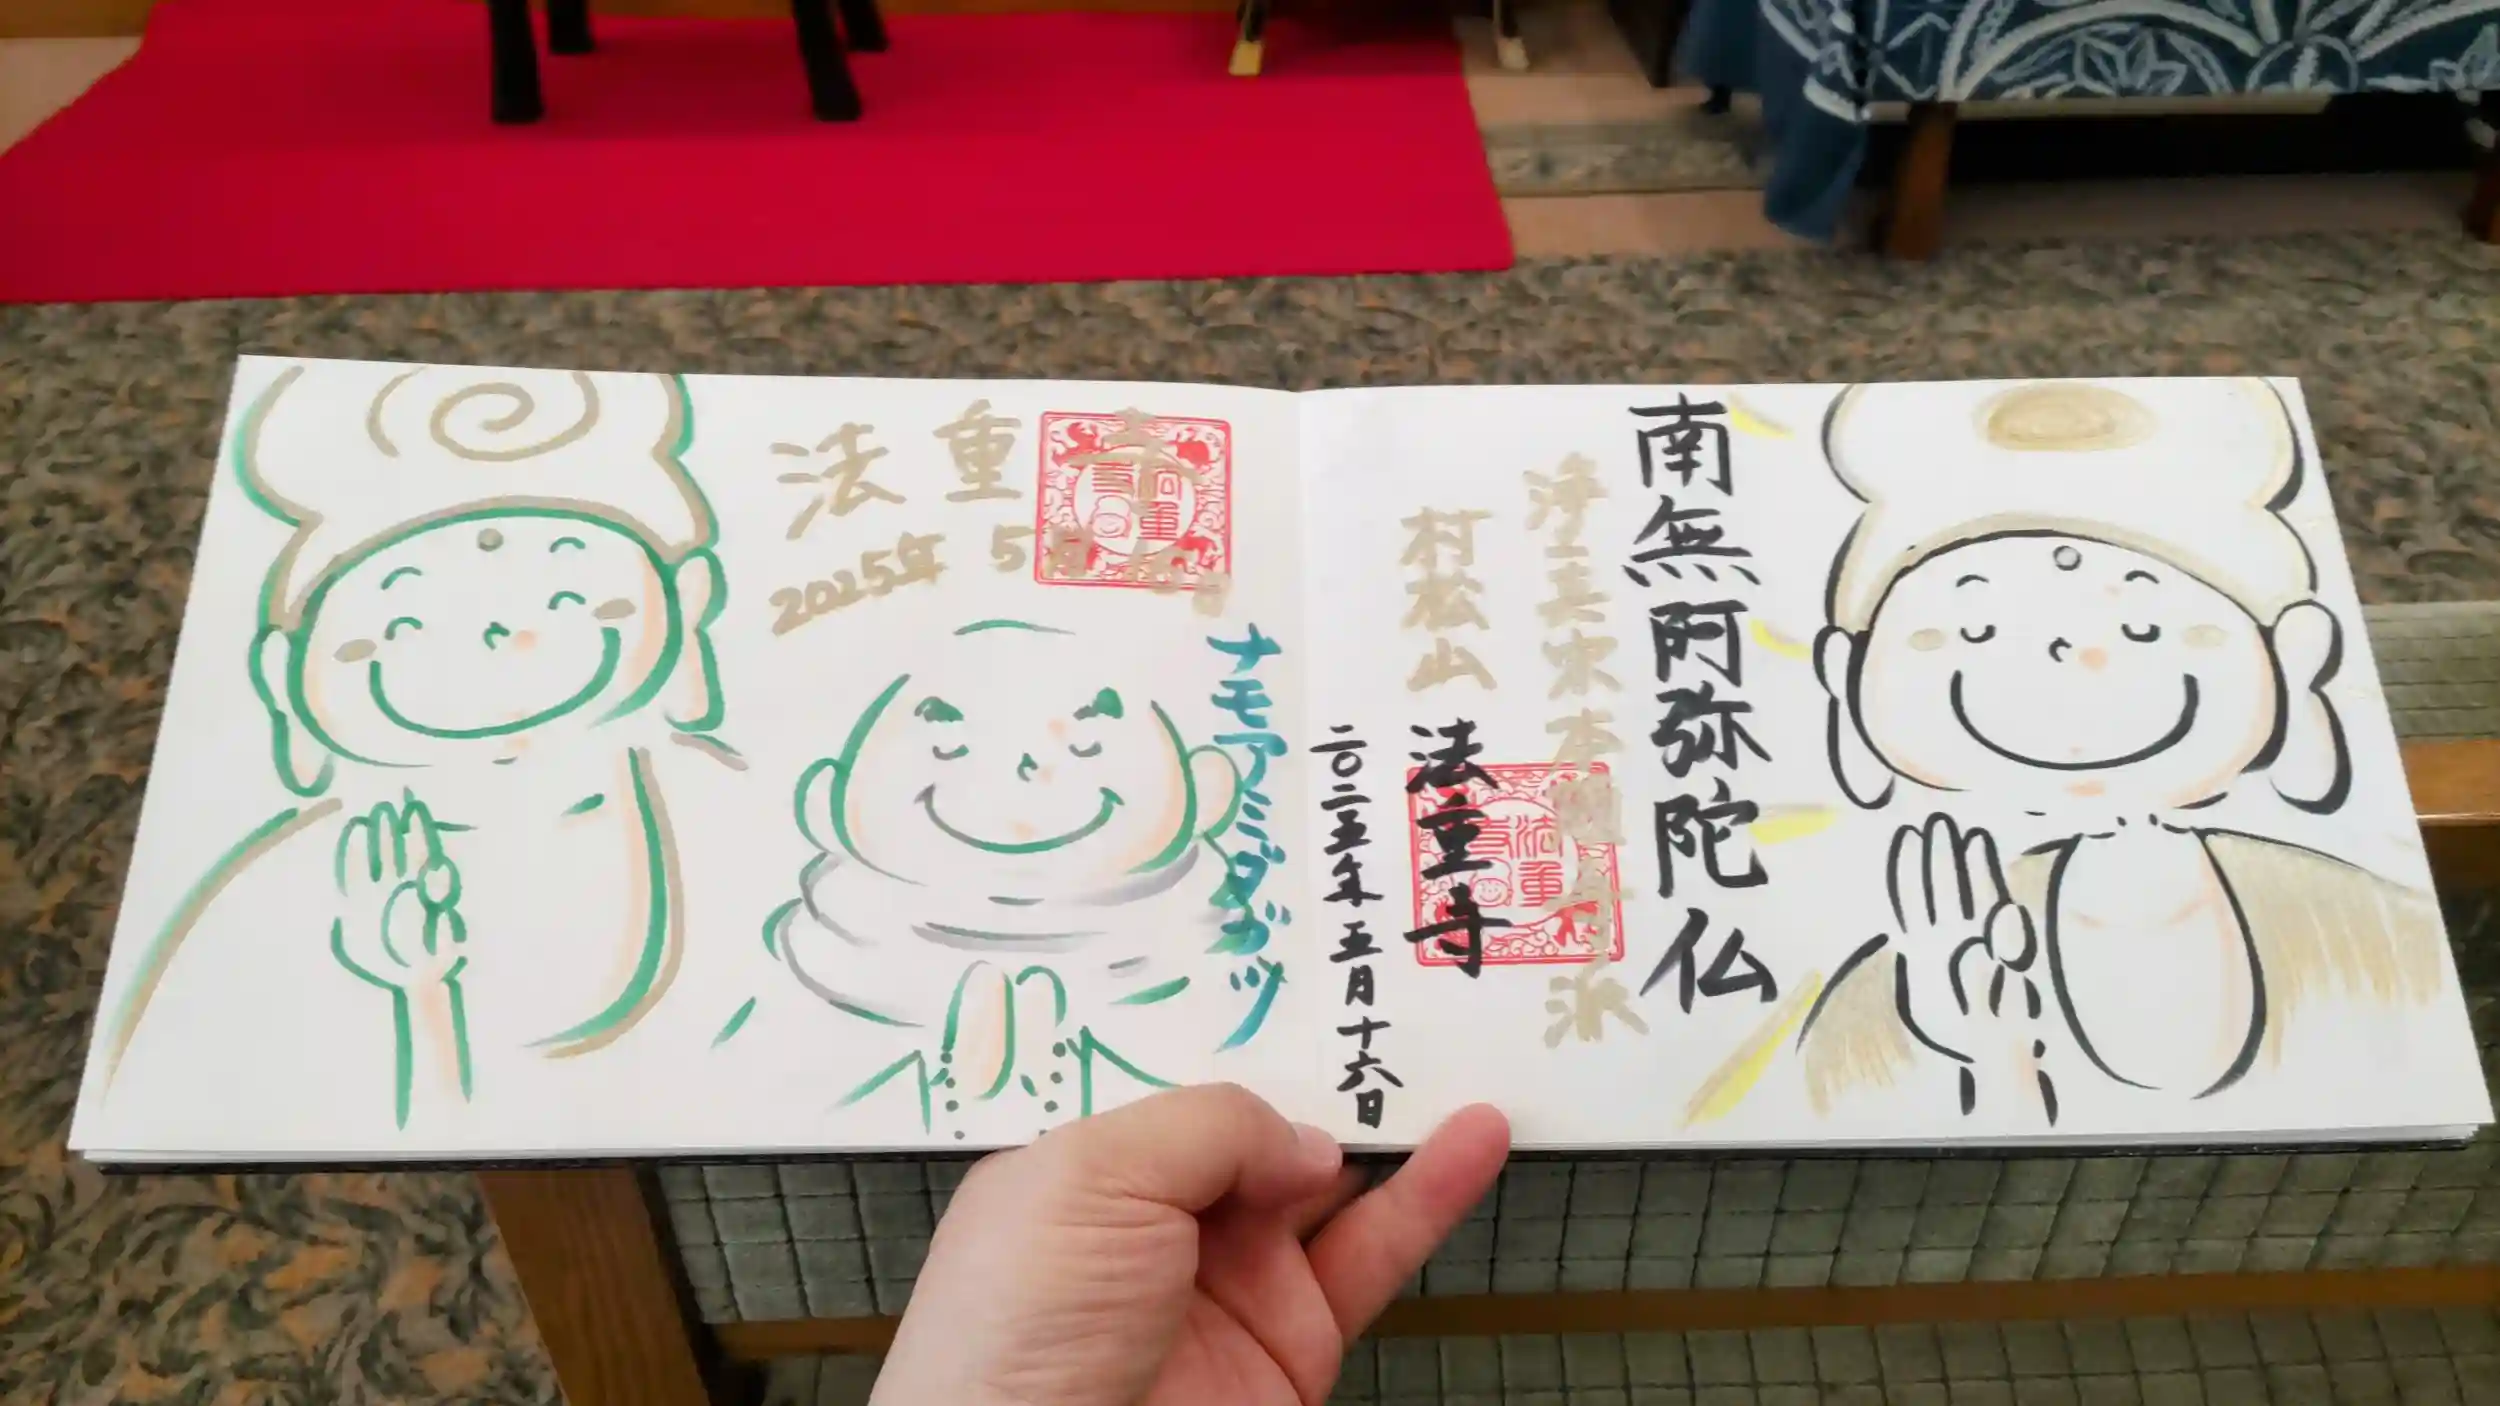 南無阿弥陀仏
浄土真宗本願寺派
村松山
法重寺
二〇二五年五月十六日
法重寺
2025年5月16日
ナモアミダブツ
法重寺